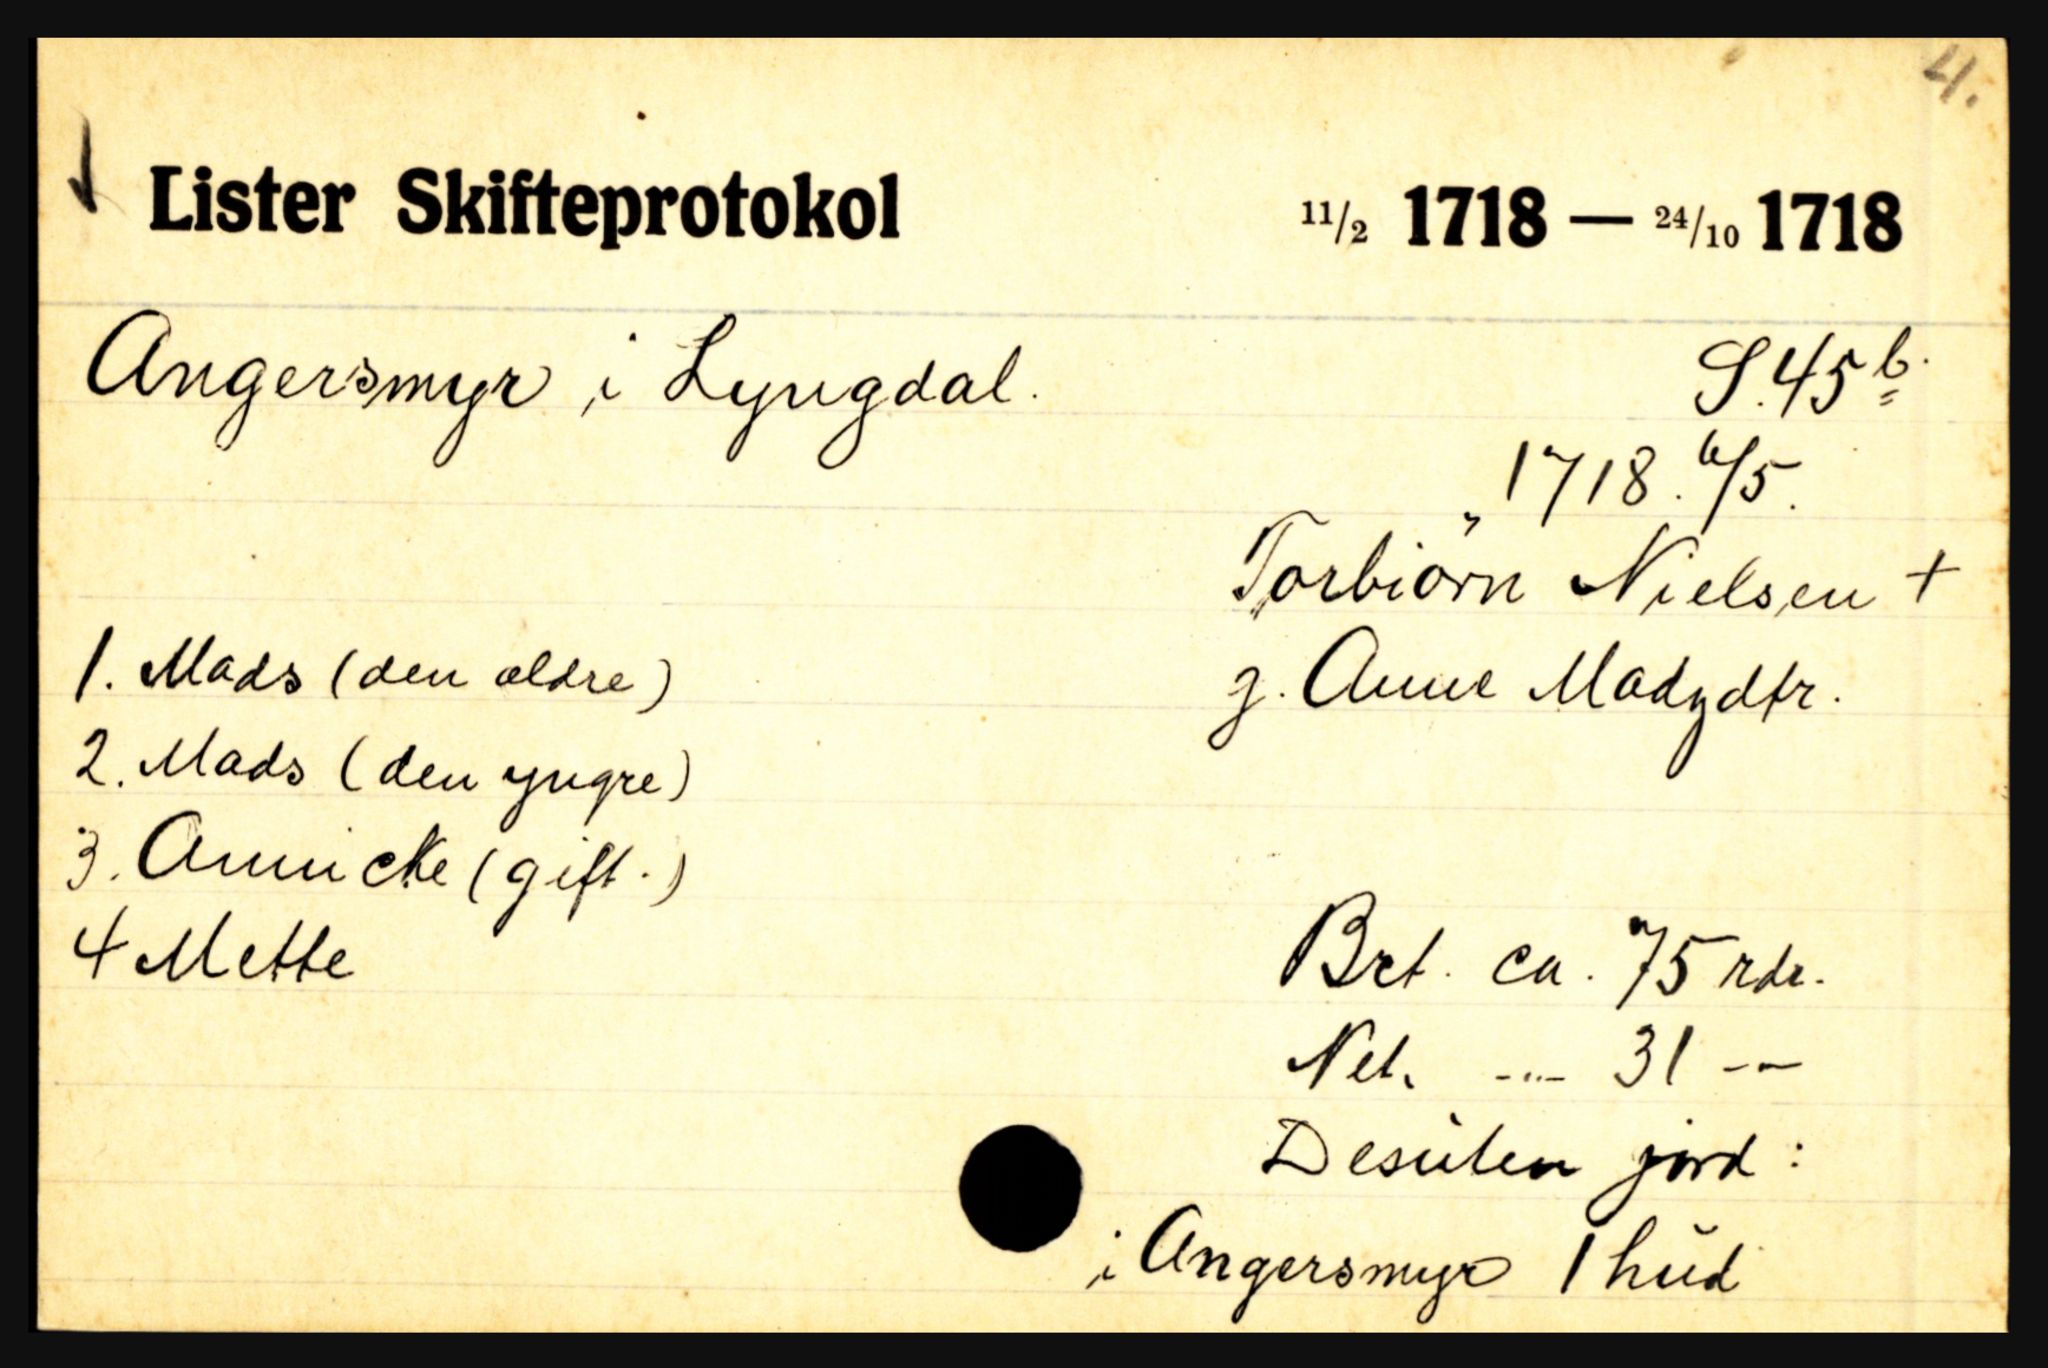 4.
Lister Skifteprotokol 11/2 1718 — 24/10 1718
Angersmyr i Lyngdal. S. 45 b.
1718. 6/5.
Torbiørn Nielsen +
1. Mads (den ældre) g. Anne Madsdtr.
2. Mads (den yngre)
3. Annicke (gift.)
4 Mette Brt. ca. 75 rdr.
Net. -"- 31 --
Desuten jord:
i Angersmyr 1 hud